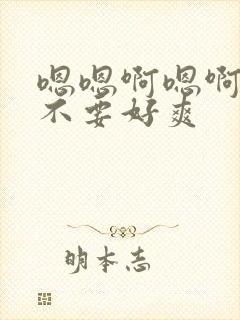 嗯嗯啊嗯啊
不要好爽
明本志